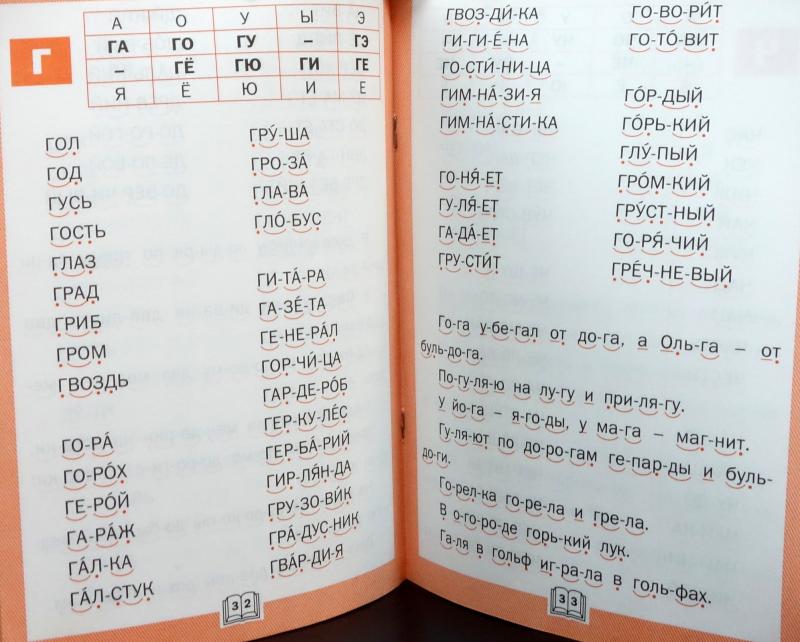 Г
А О У Ы Э
ГА ГО ГУ – ГЭ
– ГЁ ГЮ ГИ ГЕ
Я Ё Ю И Е
ГОЛ
ГОД
ГУСЬ
ГОСТЬ
ГЛАЗ
ГРАД
ГРИБ
ГРОМ
ГВОЗДЬ
ГО-РА́
ГО-РО́Х
ГЕ-РО́Й
ГА-РА́Ж
ГА́Л-КА
ГА́Л-СТУК
ГРУ́-ША
ГРО-ЗА́
ГЛА-ВА́
ГЛО́-БУС
ГИ-ТА́-РА
ГА-ЗЕ́-ТА
ГЕ-НЕ-РА́Л
ГОР-ЧИ́-ЦА
ГАР-ДЕ-РО́Б
ГЕР-КУ-ЛЕ́С
ГЕР-БА́-РИЙ
ГИР-ЛЯ́Н-ДА
ГРУ-ЗО-ВИ́К
ГРА́-ДУС-НИК
ГВА́Р-ДИ-Я
32
ГВОЗ-ДИ́-КА
ГИ-ГИ-Е́-НА
ГО-СТИ́-НИ-ЦА
ГИМ-НА́-ЗИ-Я
ГИМ-НА́-СТИ-КА
ГО-НЯ́-ЕТ
ГУ-ЛЯ́-ЕТ
ГА-ДА́-ЕТ
ГРУ-СТИ́Т
ГО-ВО-РИ́Т
ГО-ТО́-ВИТ
ГО́Р-ДЫЙ
ГО́РЬ-КИЙ
ГЛУ́-ПЫЙ
ГРО́М-КИЙ
ГРУ́СТ-НЫЙ
ГО-РЯ́-ЧИЙ
ГРЕ́Ч-НЕ-ВЫЙ
Го-га у-бе-гал от до-га, а Оль-га – от
буль-до-га.
По-гу-ля-ю на лу-гу и при-ля-гу.
У йо-га – я-го-ды, у ма-га – маг-нит.
Гу-ля-ют по до-ро-гам ге-пар-ды и буль-
до-ги.
Го-рел-ка го-ре-ла и гре-ла.
В о-го-ро-де горь-кий лук.
Га-ля в гольф иг-ра-ла в голь-фах.
33